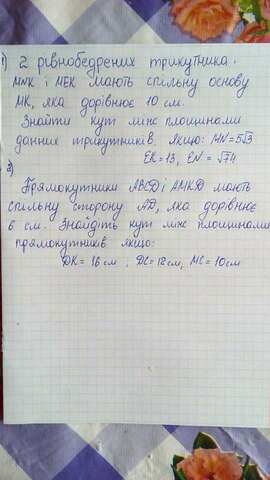 1) 2 рівнобедрених трикутника.
MNK і MEK мають спільну основу
MK, яка дорівнює 10 см.
Знайти кут між площинами
даних трикутників. Якщо: MN=5√3
EK=13, EN=√74
2)
Прямокутники ABCD і AMKD мають
спільну сторону AD, яка дорівнює
6 см. Знайдіть кут між площинами
прямокутників якщо:
DK=16см, DC=12см, MC=10см